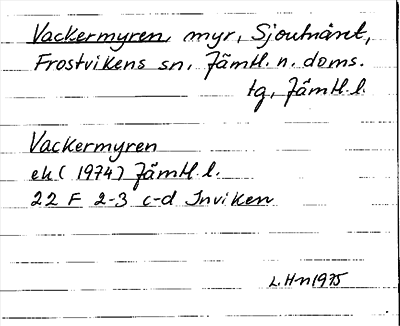 Vackermyren, myr, Sjoutnäset,
Frostvikens sn, Jämtl. n. doms.
tg, Jämtl. l.
Vackermyren
ek (1974) Jämtl. l.
22 F 2-3 c-d Inviken
L. H-n 1975